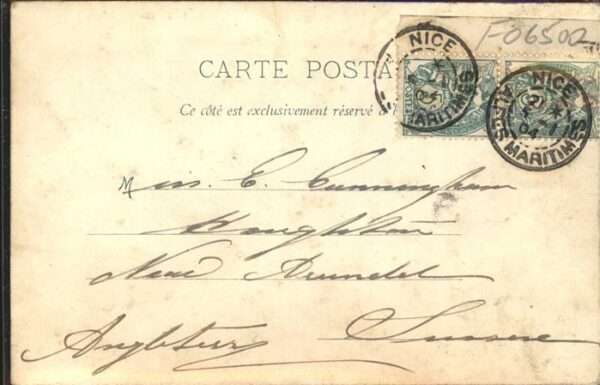 F06502
NICE
NICE
CARTE POSTA
Ce côté est exclusivement réservé à l
04
04
MARITIMES
ALPES MARITIMES
Miss. E. Cunningham
Houghton
Near Arundel
Angleterre Sussex